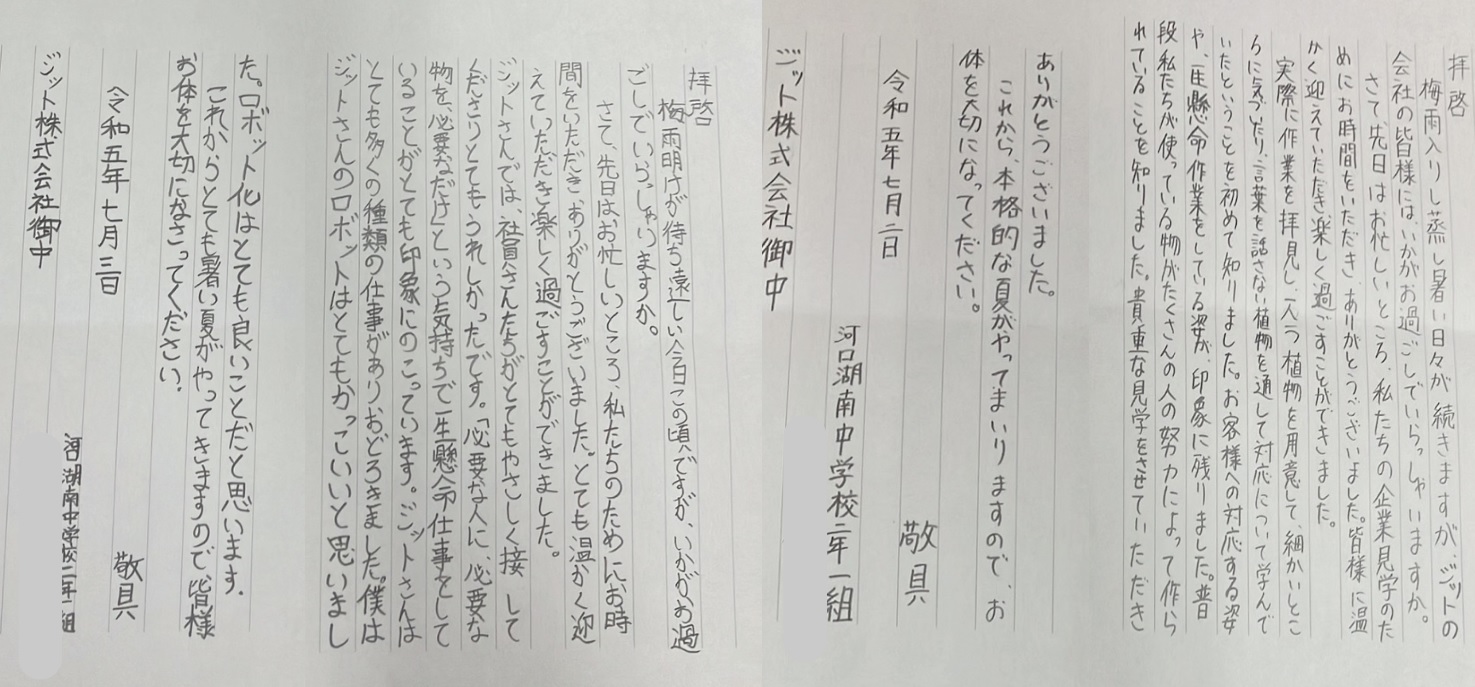 拝啓
梅雨入りし蒸し暑い日々が続きますが、ジットの
会社の皆様には、いかがお過ごしでいらっしゃいますか。
さて先日はお忙しいところ、私たちの企業見学のた
めにお時間をいただき、ありがとうございました。皆様に温
かく迎えていただき、楽しく過ごすことができました。
実際に作業を拝見し、一人一つ植物を用意して、細かいとこ
ろに気づいたり、言葉を話さない植物を通して対応について学んで
いたということを初めて知りました。お客様への対応する姿
や、一生懸命作業をしている姿が、印象に残りました。普
段私たちが使っている物がたくさんの人の努力によって作ら
れていることを知りました。貴重な見学をさせていただき
ありがとうございました。
これから、本格的な夏がやってまいりますので、お
体を大切になってください。
敬具
令和五年七月二日
河口湖南中学校二年一組
ジット株式会社御中
拝啓
梅雨明けが待ち遠しい今日この頃ですが、いかがお過
ごしでいらっしゃいますか。
さて、先日はお忙しいところ、私たちのためにお時
間をいただき、ありがとうございました。とても温かく迎
えていただき楽しく過ごすことができました。
ジットさんでは、社員さんたちがとてもやさしく接して
くださりとてもうれしかったです。「必要な人に、必要な
物を、必要なだけ」という気持ちで一生懸命仕事をして
いることがとても印象にのこっています。ジットさんは
とても多くの種類の仕事がありおどろきました。僕は
ジットさんのロボットはとてもかっこいいと思いまし
た。ロボット化はとても良いことだと思います.
これからとても暑い夏がやってきますので、皆様
お体を大切になさってください.
敬具
令和五年七月三日
河口湖南中学校二年一組
ジット株式会社御中